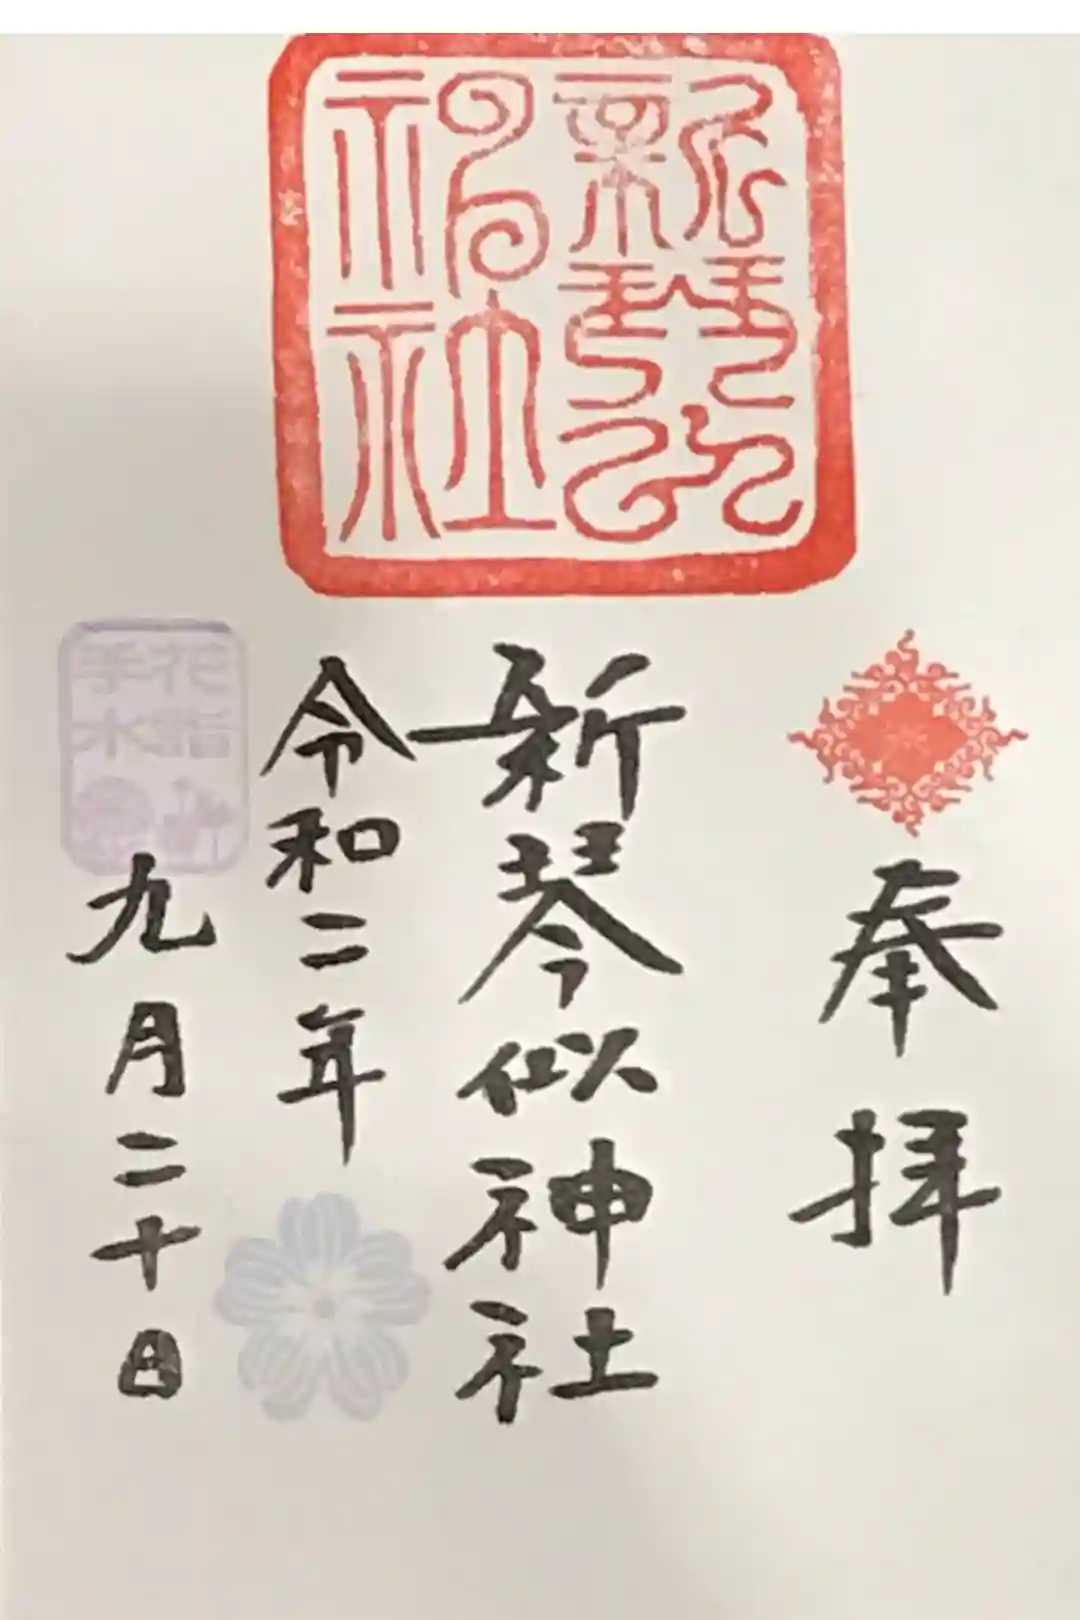 新琴似
神社
奉拝
新琴似神社
令和二年
九月二十日
花詣
手水